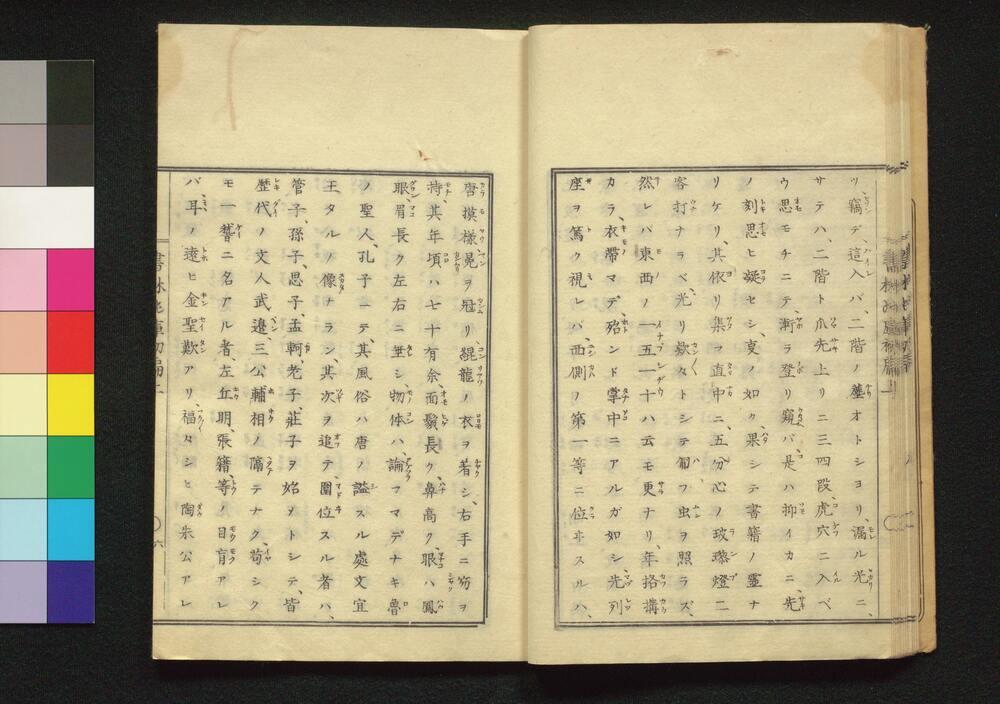 ツ、竊デ這入バ、二階ノ埀オトシヨリ、漏ル光ニ、
サテハ、二階ト爪先上リニ三四段、虎穴ニ入ベ
ウ思モチニテ、漸ラ登リ窺バ是ハ抑イカニ、先
ノ刻思ヒ疑セシ、夏ノ如ク、果シテ書籍ノ靈ナ
リケリ、其依リ集コ直中ニ、五分心ノ玻璃燈二
客打ナラベ、光リ歘々トシテ匍フ虫ヲ照ラズ、
然レバ東西ノ一五一十ハ云モ更ナリ、年挌搆
カラ、衣帶マデ、殆ンド掌中ニアルガ如シ、先列
座ヲ篤ク視レバ、西側ノ第一等ニ位ヰスルハ、
唐摸樣冕ヲ冠リ、緄龍ノ衣ヲ著シ、右手ニ笏ヲ
持、其年頃ハ七十有余、面貌長ク、鼻高ク、眼ハ鳳
眼、眉長ク左右ニ垂シ、物体ハ、論フマデナキ魯
ノ聖人、孔子ニテ、其風俗ハ唐ノ謚スル處文宣
王タルノ像ナラン、其次ヲ追テ、圍位スル者ハ、
管子、孫子、思子、孟軻、老子、莊子ヲ始メトシテ、皆
歴代ノ文人武邉、三公輔相ノ隔テナク、苟シク
モ一藝ニ名アル者、左丘明、張籍、等ノ目盲アレ
バ、耳ノ遠ヒ金聖歎アリ、福々シヒ陶朱公アレ
六